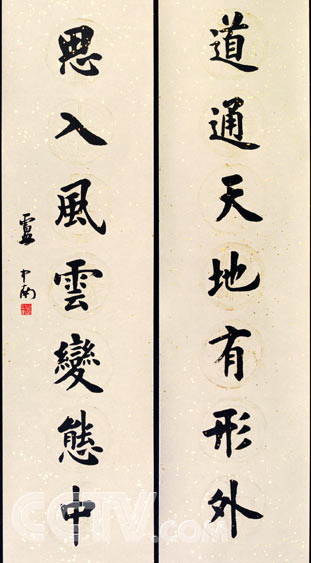 道通天地有形外
思入風雲變態中
盧中南
CCTV.com